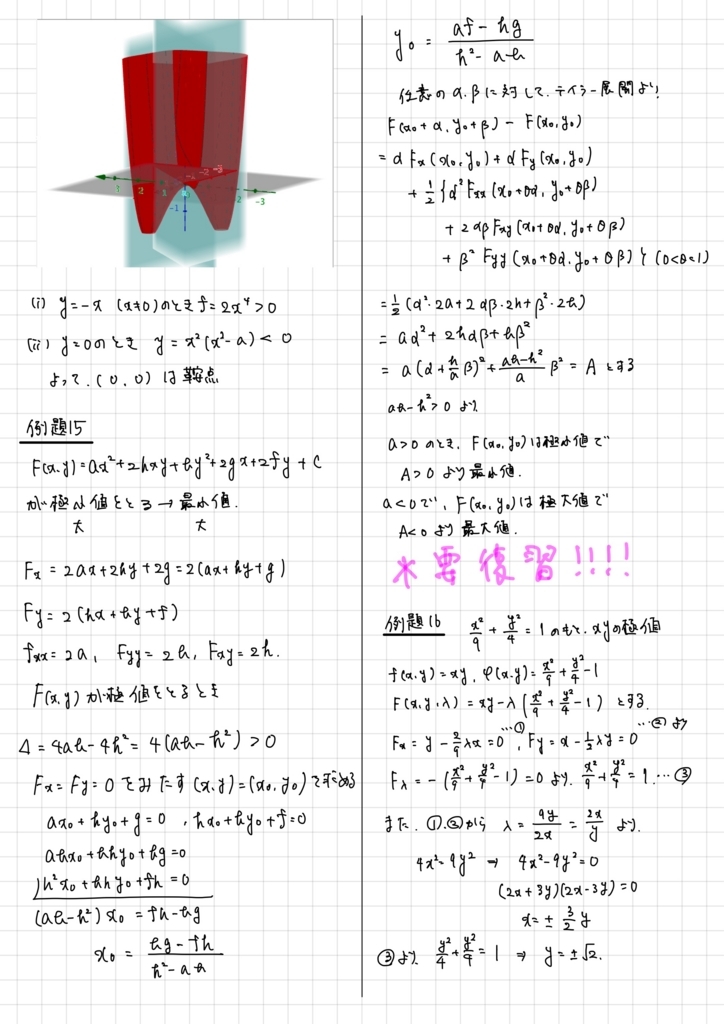 3 2 1 -1 -2 -3
-1
-3
(i) y=-x (x≠0)のとき f=2x⁴>0
(ii) y=0のとき y=x²(x²-a)<0
よって、(0,0)は鞍点
例題15
F(x,y)=ax²+2hxy+by²+2gx+2fy+c
が極小値をとる→最小値.
大 大
Fx=2ax+2hy+2g=2(ax+hy+g)
Fy=2(hx+by+f)
fxx=2a, Fyy=2b, Fxy=2h.
F(x,y)が極値をとるとき
Δ=4ab-4h²=4(ab-h²)>0
Fx=Fy=0をみたす(x,y)=(x₀,y₀)で求める
ax₀+hy₀+g=0, hx₀+by₀+f=0
abx₀+bhy₀+bg=0
)h²x₀+bhy₀+fh=0
(ab-h²)x₀=fh-bg
x₀=\frac{bg-fh}{h²-ab}
y₀=\frac{af-hg}{h²-ab}
任意のα,βに対して、テイラー展開より
F(x₀+α,y₀+β)-F(x₀,y₀)
=αFx(x₀,y₀)+αFy(x₀,y₀)
+\frac{1}{2}{α²Fxx(x₀+θα,y₀+θβ)
+2αβFxy(x₀+θα,y₀+θβ)
+β²Fyy(x₀+θα,y₀+θβ)} (0<θ<1)
=\frac{1}{2}(α²·2a+2αβ·2h+β²·2b)
=aα²+2hαβ+bβ²
=a(α+\frac{h}{a}β)²+\frac{ab-h²}{a}β²=Aとする
ab-h²>0より
a>0のとき、F(x₀,y₀)は極小値で
A>0より最小値.
a<0で、F(x₀,y₀)は極大値で
A<0より最大値.
※要復習!!!!
例題16 \frac{x²}{9}+\frac{y²}{4}=1のもと、xyの極値
f(x,y)=xy, φ(x,y)=\frac{x²}{9}+\frac{y²}{4}-1
F(x,y,λ)=xy-λ(\frac{x²}{9}+\frac{y²}{4}-1)とする.
Fx=y-\frac{2}{9}λx=0…①, Fy=x-\frac{1}{2}λy=0…②より
Fλ=-(\frac{x²}{9}+\frac{y²}{4}-1)=0より、\frac{x²}{9}+\frac{y²}{4}=1…③
また、①,②から λ=\frac{9y}{2x}=\frac{2x}{y}より.
4x²=9y² ⇒ 4x²-9y²=0
(2x+3y)(2x-3y)=0
x=±\frac{3}{2}y
③より、\frac{y²}{4}+\frac{y²}{4}=1 ⇒ y=±√2.